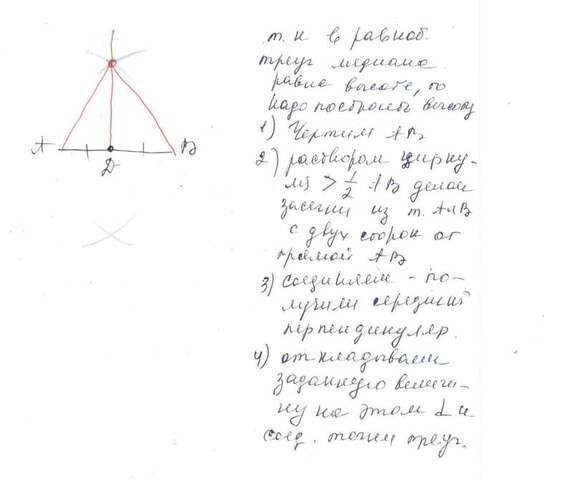 т. к в равноб.
треуг медиана
равна высоте, то
надо построить высоту
1) Чертим АВ
2) раствором цирку-
ля > 1/2 АВ делаем
засечки из т. А и В
с двух сторон от
прямой АВ
3) соединяем - по-
лучили середин
перпендикуляр.
4) откладываем
заданную величи-
ну на этом ⊥ и
соед. точки треуг.
А
В
D